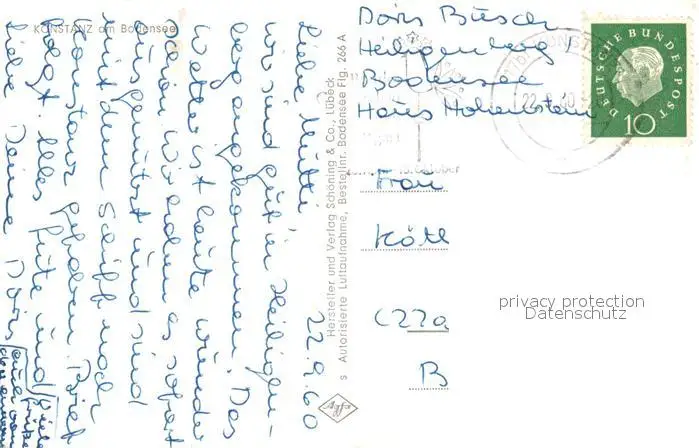 KONSTANZ am Bodensee
22.9.60
Liebe Mutti
wir sind gut in Heiligen-
berg angekommen. Das
Wetter ist heute wunder
schön wir haben es sofort
ausgenützt und sind
mit dem Schiff nach
Konstanz gefahren. Brief
folgt. Alles Gute und
Liebe Deine Doris
Hersteller und Verlag Schöning & Co., Lübeck
s Autorisierte Luftaufnahme, Bestellnr. Bodensee Flg. 266 A
Agfa
Doris Büsch
Heiligenberg
Bodensee
Haus Hohenstein
DEUTSCHE BUNDESPOST
10
Frau
Köll
(22a
B
privacy protection
Datenschutz